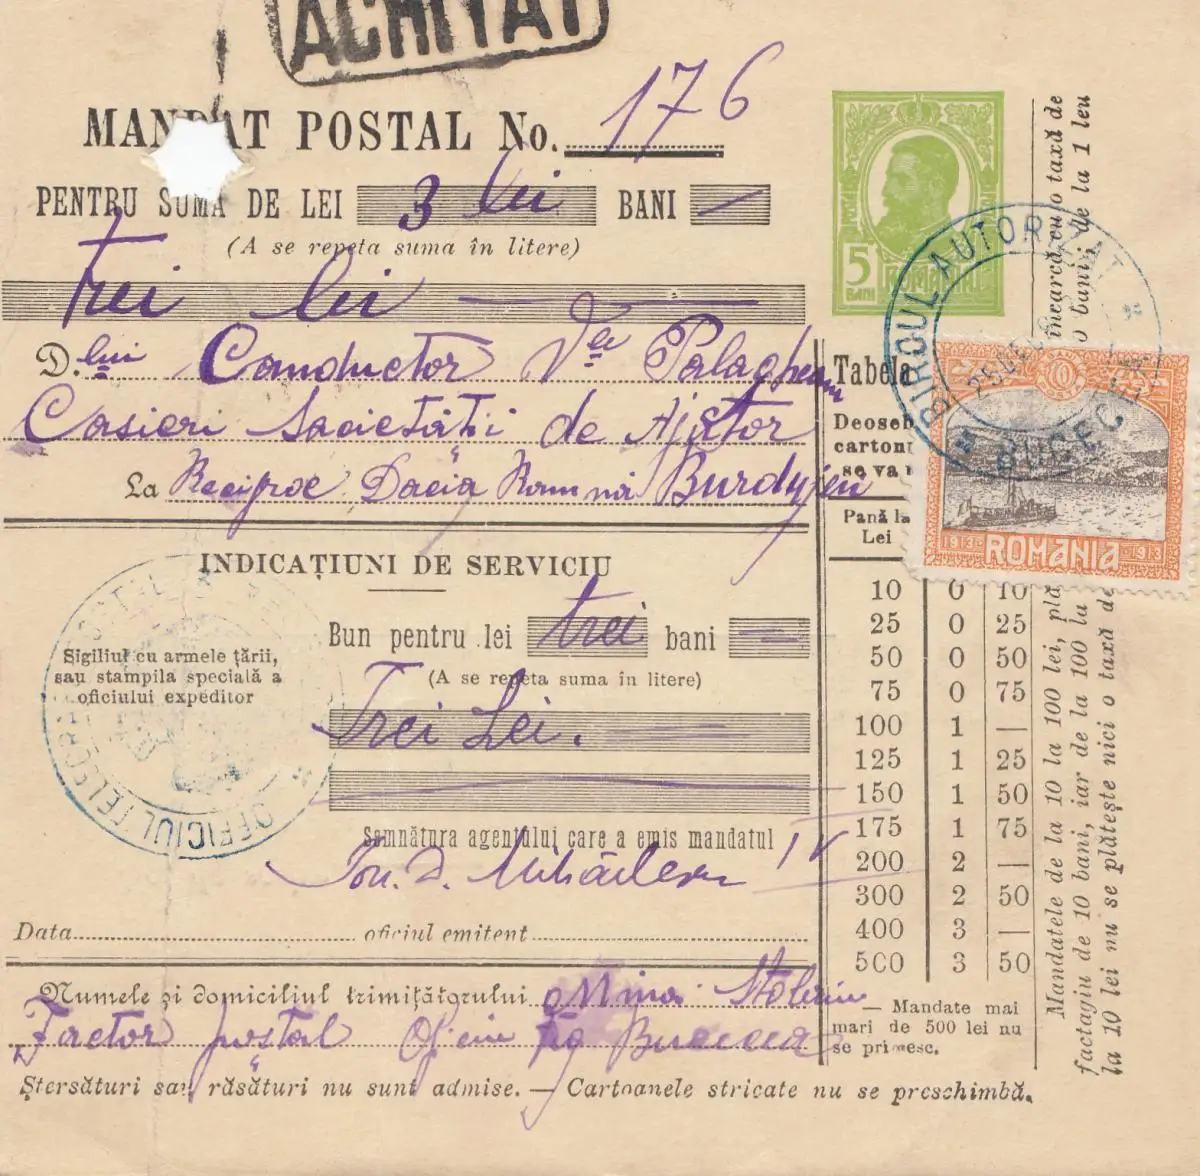 ACHITAT
MANDAT POSTAL No. 176
PENTRU SUMA DE LEI 3 lei BANI —
(A se repeta suma în litere)
trei lei
D.lui Conductor Vle Palaghean
Casieri Societăti de Ajutor
La Reciproc Dacia Romînă Burdujeni
INDICAȚIUNI DE SERVICIU
Sigiliul cu armele țării,
sau stampila specială a
oficiului expeditor
OFICIUL TELEGR
Bun pentru lei trei bani —
(A se repeta suma în litere)
Trei Lei.
Semnătura agentului care a emis mandatul
Ion. D. Mihăilescu
Data oficiul emitent
Numele și domiciliul trimițătorului
Factor postal Bucecea
Ștersături sau răsături nu sunt admise. — Cartoanele stricate nu se preschimbă.
5
BANI
ROMANIA
BIROUL AUTORIZAT
BUCEC
1913 ROMANIA 1913
Tabela
Deoseb
carton
se va
Pană la
Lei
10 0 10
25 0 25
50 0 50
75 0 75
100 1 —
125 1 25
150 1 50
175 1 75
200 2 —
300 2 50
400 3 —
500 3 50
— Mandate mai
mari de 500 lei nu
se primesc.
încarcă cu o taxă de
o bani; de la 1 leu
Mandatele de la 10 la 100 lei, plă
factagiu de 10 bani, iar de la 100 la
la 10 lei nu se plătește nici o taxă de